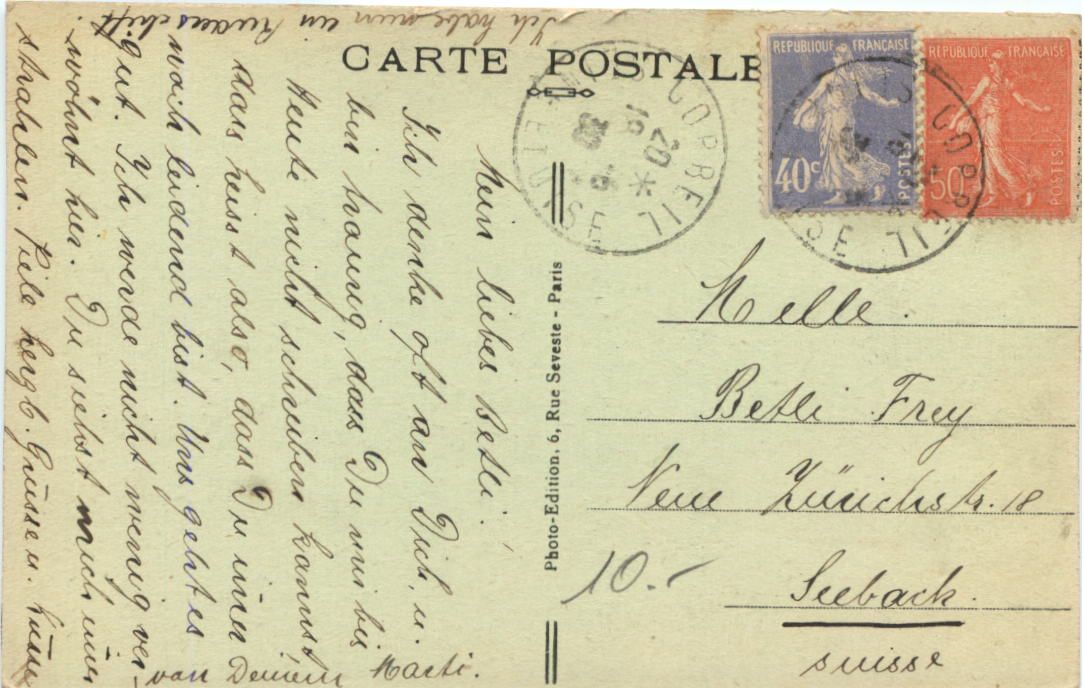 CARTE POSTALE
Mein liebes Betli!
Ich denke oft an Dich, u.
bin traurig, dass Du mir bis
Heute nicht schreiben kannst
das heisst also, dass Du immer
noch leidend bist. Uns geht es
gut. Ich werde nicht wenig ver-
wöhnt hier. Du siehst mich nur
strahlen. Viele herzl. Grüsse u. Küsse
von Deinem Marti.
Ich habe nun ein
Photo-Edition, 6, Rue Seveste - Paris
REPUBLIQUE FRANÇAISE
40c
POSTES
REPUBLIQUE FRANÇAISE
50c
POSTES
CORBEIL
ET OISE
20 *
Melle.
Betli Frey
Neue Zürichstr. 18
Seebach.
suisse
10.-